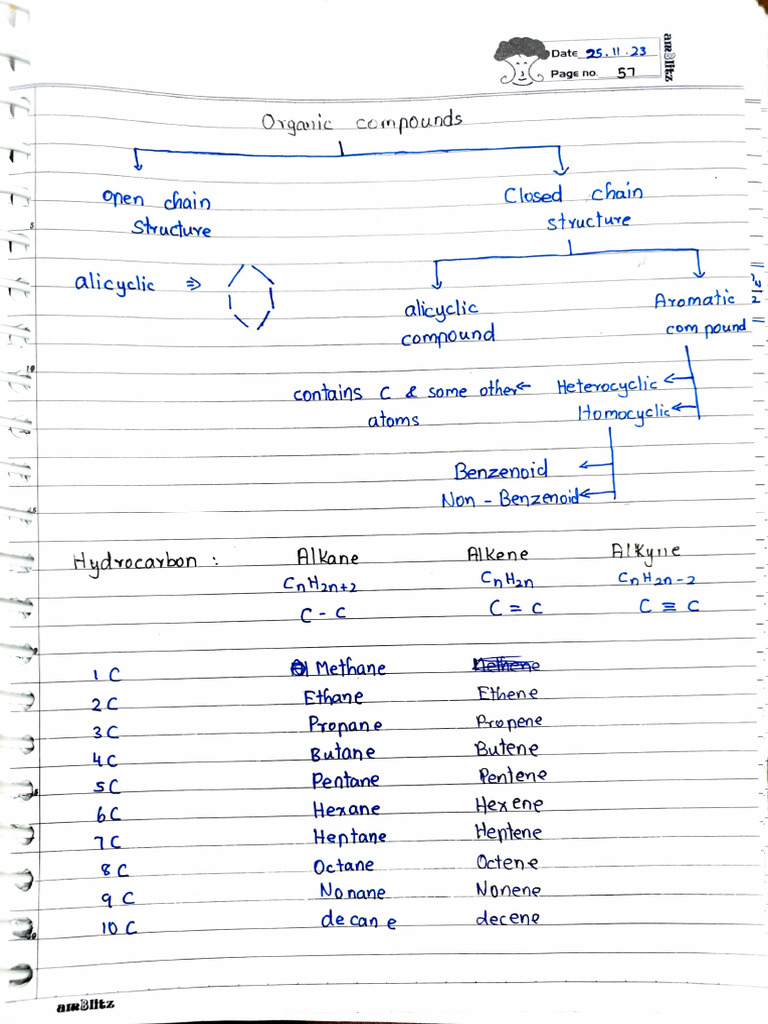 Date 25.11.23
Page no. 57
amBlitz
Organic compounds
Open chain Structure
Closed chain structure
alicyclic ⇒
alicyclic compound
Aromatic compound
contains C & some other atoms ← Heterocyclic
Homocyclic
Benzenoid
Non - Benzenoid
Hydrocarbon : Alkane Alkene Alkyne
CnH2n+2 CnH2n CnH2n-2
C - C C = C C ≡ C
1 C Methane Methene
2C Ethane Ethene
3C Propane Propene
4C Butane Butene
5C Pentane Pentene
6C Hexane Hexene
7C Heptane Heptene
8C Octane Octene
9 C Nonane Nonene
10 C decane decene
amBlitz